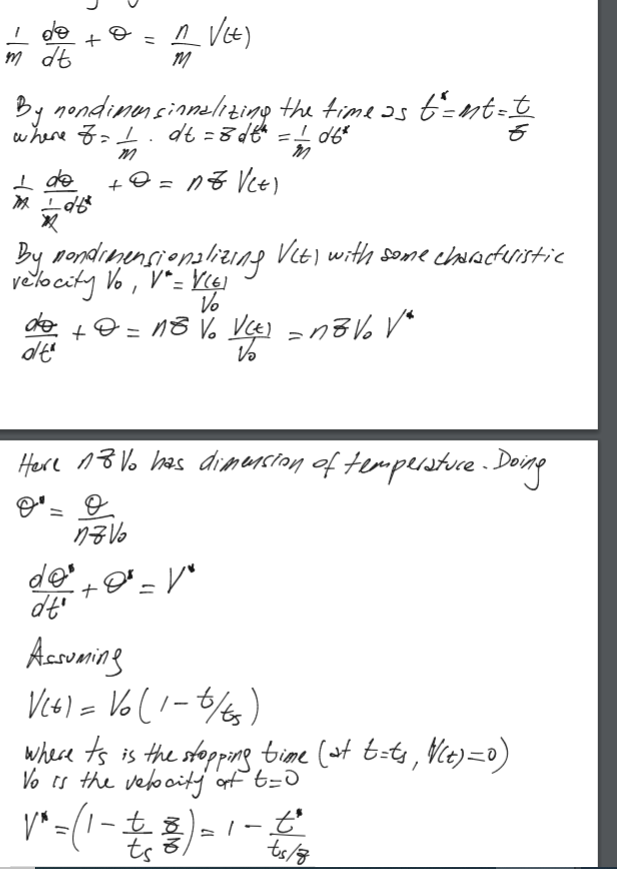 1/m dθ/dt + θ = n/m V(t)
By nondimensionalizing the time as t* = mt = t/τ
where τ = 1/m . dt = τ dt* = 1/m dt*
1/m dθ/(1/m dt*) + θ = nτ V(t)
By nondimensionalizing V(t) with some characteristic
velocity V₀, V* = V(t)/V₀
dθ/dt* + θ = nτ V₀ V(t)/V₀ = nτV₀ V*
Here nτV₀ has dimension of temperature. Doing
θ* = θ/(nτV₀)
dθ*/dt* + θ* = V*
Assuming
V(t) = V₀(1 - t/ts)
where ts is the stopping time (at t=ts, V(t)=0)
V₀ is the velocity at t=0
V* = (1 - t/ts τ/τ) = 1 - t*/(ts/τ)